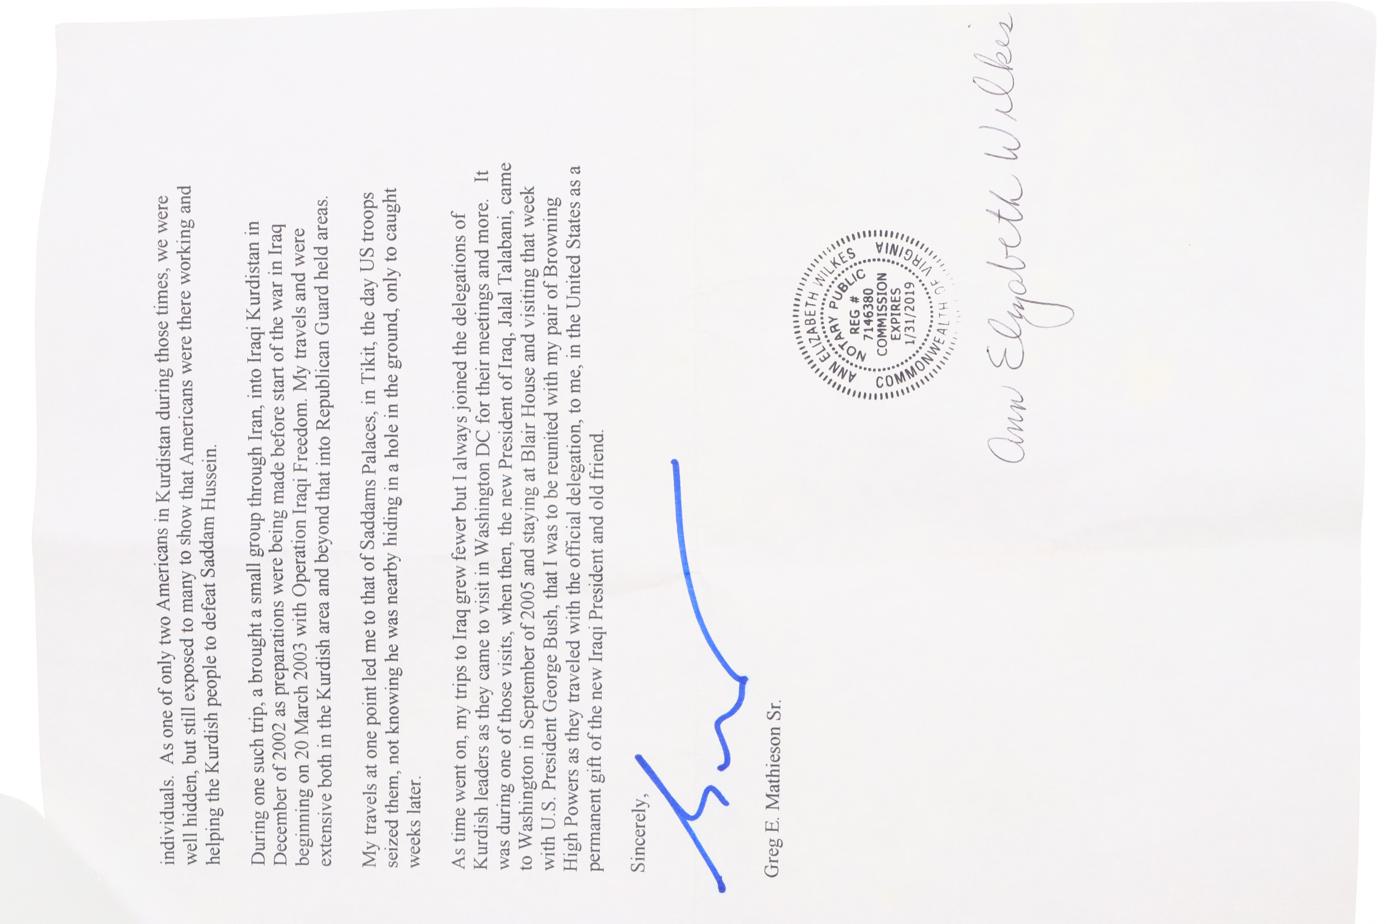 individuals. As one of only two Americans in Kurdistan during those times, we were
well hidden, but still exposed to many to show that Americans were there working and
helping the Kurdish people to defeat Saddam Hussein.
During one such trip, a brought a small group through Iran, into Iraqi Kurdistan in
December of 2002 as preparations were being made before start of the war in Iraq
beginning on 20 March 2003 with Operation Iraqi Freedom. My travels and were
extensive both in the Kurdish area and beyond that into Republican Guard held areas.
My travels at one point led me to that of Saddams Palaces, in Tikit, the day US troops
seized them, not knowing he was nearby hiding in a hole in the ground, only to caught
weeks later.
As time went on, my trips to Iraq grew fewer but I always joined the delegations of
Kurdish leaders as they came to visit in Washington DC for their meetings and more. It
was during one of those visits, when then, the new President of Iraq, Jalal Talabani, came
to Washington in September of 2005 and staying at Blair House and visiting that week
with U.S. President George Bush, that I was to be reunited with my pair of Browning
High Powers as they traveled with the official delegation, to me, in the United States as a
permanent gift of the new Iraqi President and old friend.
Sincerely,
Greg E. Mathieson Sr.
ANN ELIZABETH WILKES
NOTARY PUBLIC
REG #
7146380
COMMISSION
EXPIRES
1/31/2019
COMMONWEALTH OF VIRGINIA
Ann Elizabeth Wilkes